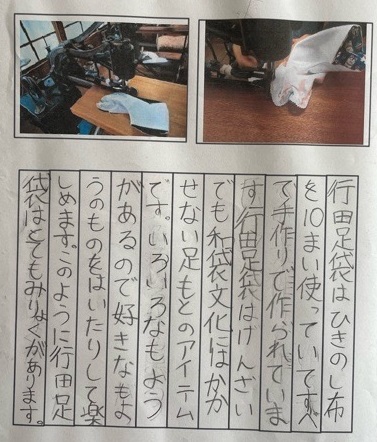 行田足袋はひきのし布
を10まい使っていてすべ
て手作りで作られていま
す行田足袋はげんざい
でも和袋文化にはかか
せない足もとのアイテム
です。いろいろなもよう
があるので好きなもよ
うのものをはいたりして楽
しめます。このように行田足
袋はとてもみりょくがあります。